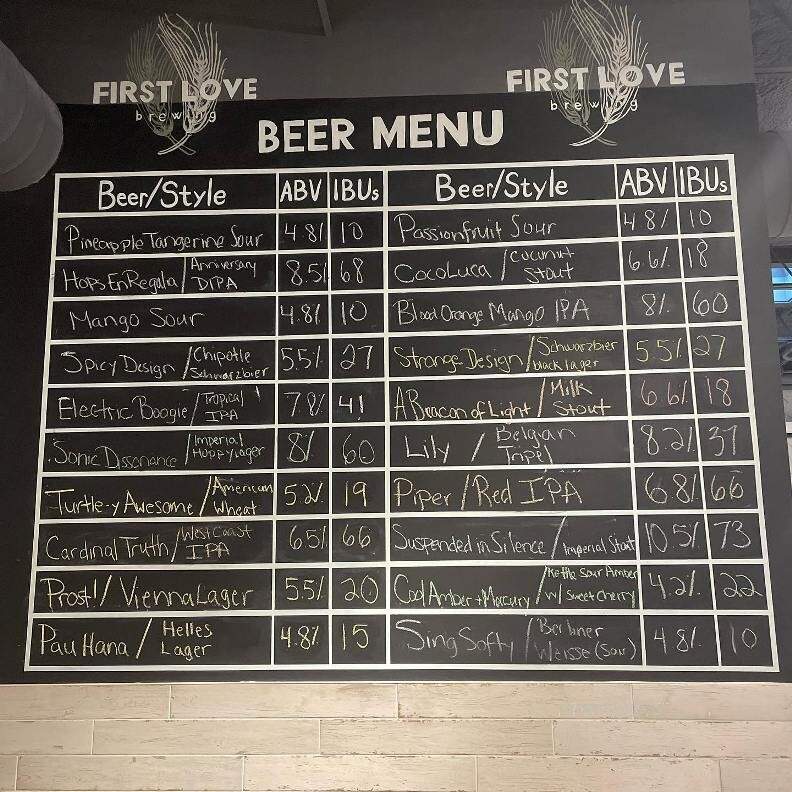 FIRST LOVE
brewing
FIRST LOVE
brewing
BEER MENU
Beer/Style ABV IBUs
Pineapple Tangerine Sour 4.8% 10
HopsEnRegalia / Anniversary DIPA 8.5% 68
Mango Sour 4.8% 10
Spicy Design / Chipotle Schwarzbier 5.5% 27
Electric Boogie / Tropical IPA 7.8% 41
Sonic Dissonance / Imperial Hoppy Lager 8% 60
Turtle-y Awesome / American Wheat 5.2% 19
Cardinal Truth / West Coast IPA 6.5% 66
Prost! / Vienna Lager 5.5% 20
Pau Hana / Helles Lager 4.8% 15
Beer/Style ABV IBUs
Passionfruit Sour 4.8% 10
CocoLuca / Coconut Stout 6.6% 18
Blood Orange Mango IPA 8% 60
Strange Design / Schwarzbier black lager 5.5% 27
A Beacon of Light / Milk Stout 6.6% 18
Lily / Belgian Tripel 8.2% 37
Piper / Red IPA 6.8% 66
Suspended in Silence / Imperial Stout 10.5% 73
Cool Amber + Mercury / Kettle Sour Amber w/ Sweet Cherry 4.2% 22
Sing Softly / Berliner Weisse (Sour) 4.8% 10